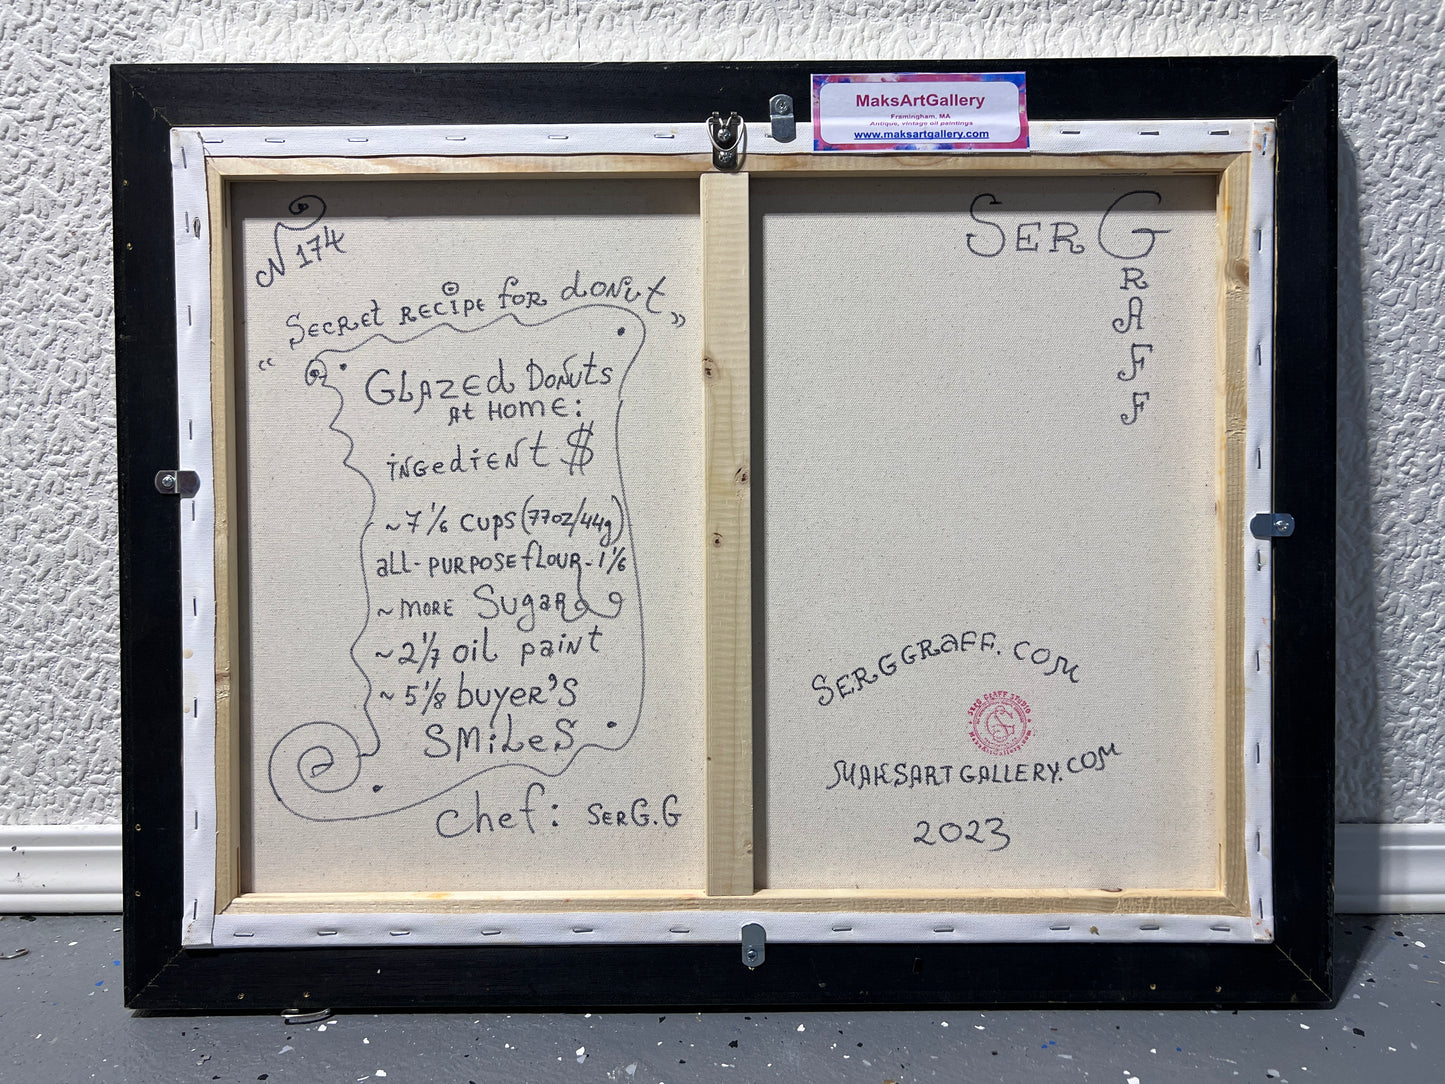 MaksArtGallery
Framingham, MA
Antique, vintage oil paintings
www.maksartgallery.com
N 174
"Secret recipe for donut"
Glazed Donuts
at Home:
ingedient $
~ 7 1/6 cups (77oz/44g)
all-purpose flour - 1 1/6
~ more Sugar
~ 2 1/7 oil paint
~ 5 1/8 buyer's
smiles
chef: SerG.G
SerG
R
A
F
F
SERGGRAFF.COM
SERG GRAFF STUDIO
MaksArtGallery.com
MAKSARTGALLERY.COM
2023